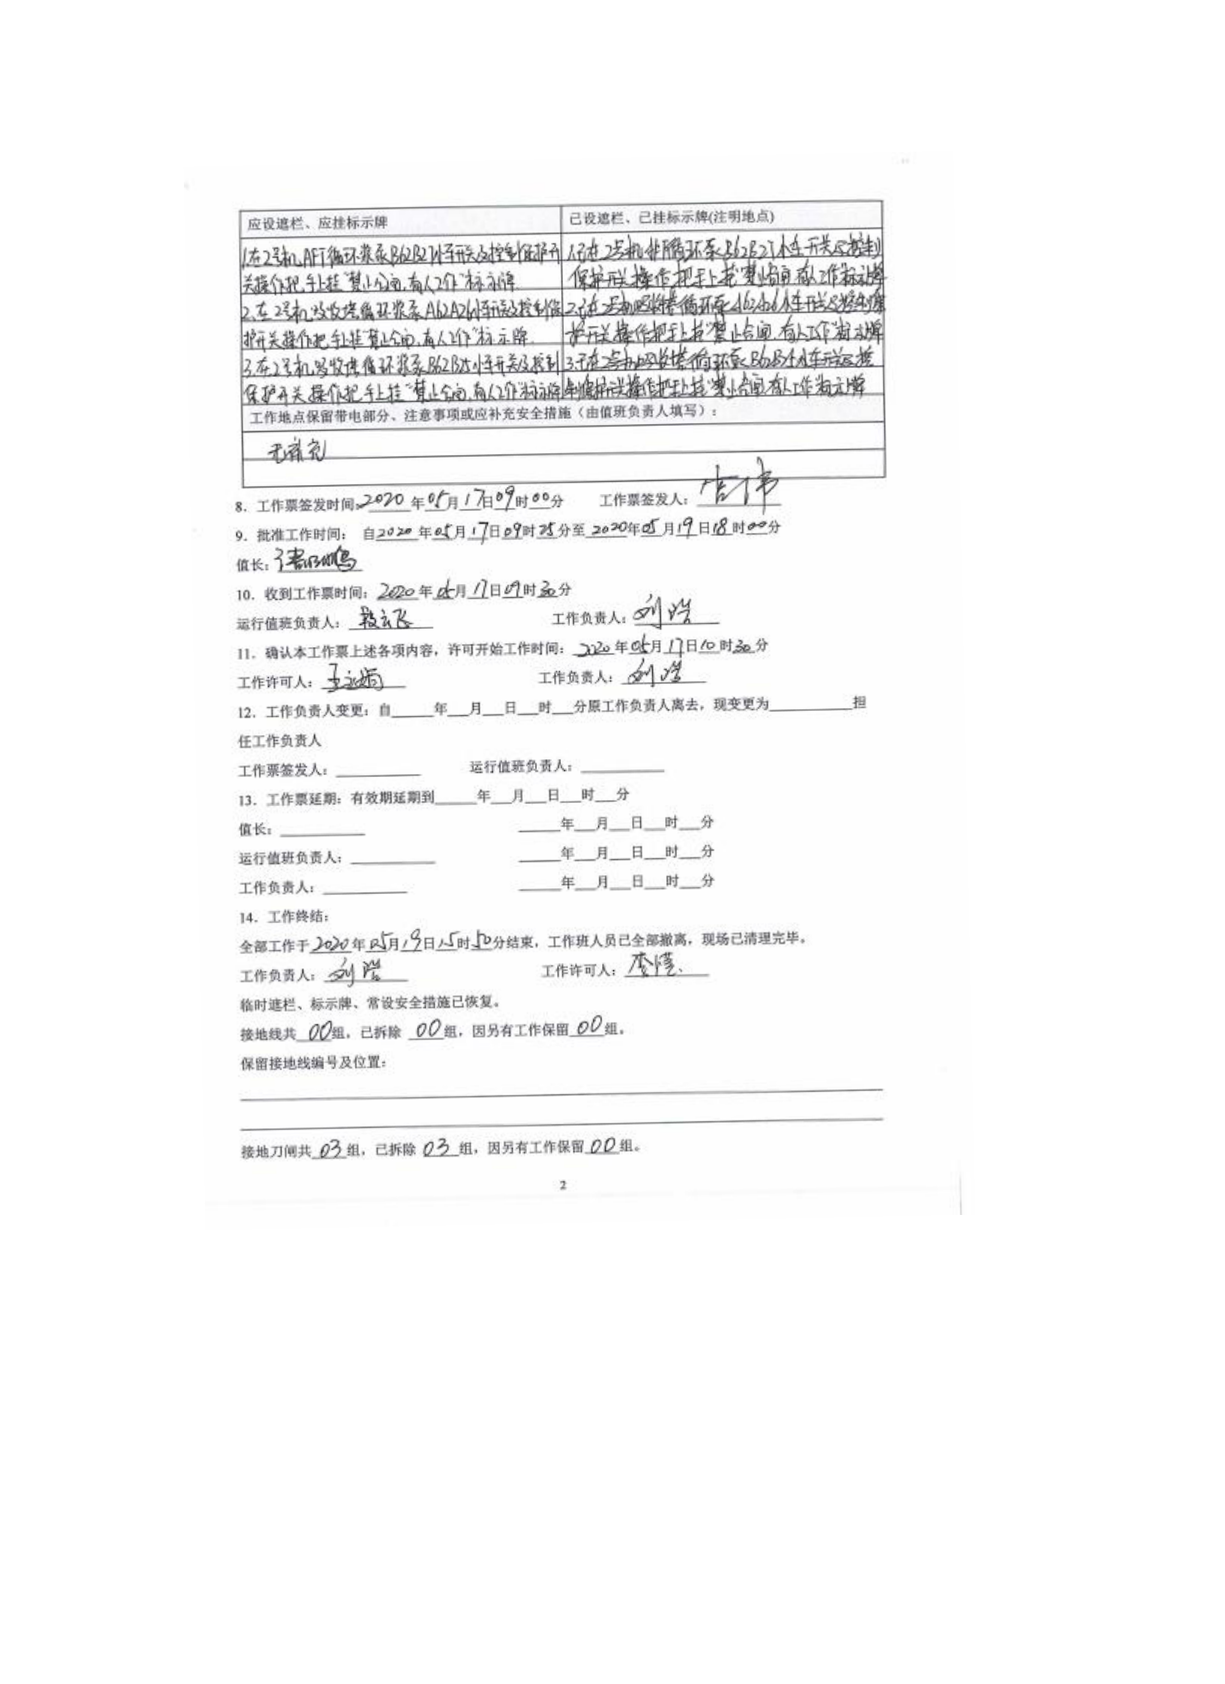 应设遮栏、应挂标示牌
已设遮栏、已挂标示牌(注明地点)
1.在2号机AFT循环浆泵B62B27小车开关及控制保护开
关操作把手上挂"禁止合闸,有人工作"标示牌
2.在2号机吸收塔循环浆泵A62A26小车开关及控制保
护开关操作把手上挂"禁止合闸,有人工作"标示牌
3.在2号机吸收塔循环浆泵B62B25小车开关及控制
保护开关操作把手上挂"禁止合闸,有人工作"标示牌
1.已在2号机 循环泵B62B27小车开关及控制
保护开关操作把手上挂"禁止合闸,有人工作"标示牌
2.已在2号机吸收塔循环泵A62A26小车开关及控制保
护开关操作把手上挂"禁止合闸,有人工作"标示牌
3.已在2号机吸收塔循环泵 小车开关及控
制保护开关操作把手上挂"禁止合闸,有人工作"标示牌
工作地点保留带电部分、注意事项或应补充安全措施（由值班负责人填写）：
无补充
8．工作票签发时间：2020年05月17日09时00分 工作票签发人：
9．批准工作时间： 自2020年05月17日09时25分至2020年05月19日18时00分
值长：
10．收到工作票时间：2020年05月17日09时30分
运行值班负责人：段云飞 工作负责人：刘浩
11．确认本工作票上述各项内容，许可开始工作时间：2020年05月17日10时30分
工作许可人： 工作负责人：刘浩
12．工作负责人变更：自____年__月__日__时__分原工作负责人离去，现变更为________担
任工作负责人
工作票签发人：________ 运行值班负责人：________
13．工作票延期：有效期延期到____年__月__日__时__分
值长：________ ____年__月__日__时__分
运行值班负责人：________ ____年__月__日__时__分
工作负责人：________ ____年__月__日__时__分
14．工作终结：
全部工作于2020年05月19日15时50分结束，工作班人员已全部撤离，现场已清理完毕。
工作负责人：刘浩 工作许可人：
临时遮栏、标示牌、常设安全措施已恢复。
接地线共00组，已拆除00组，因另有工作保留00组。
保留接地线编号及位置：
接地刀闸共03组，已拆除03组，因另有工作保留00组。
2